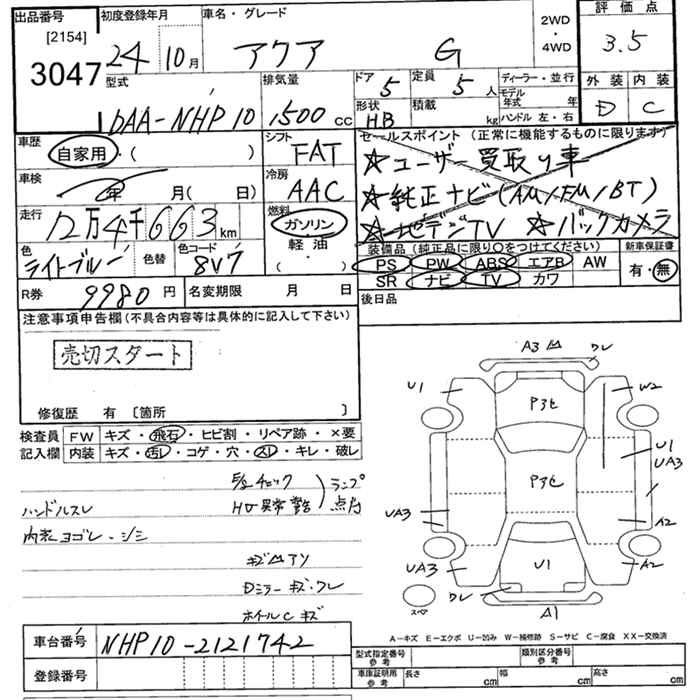 出品番号 初度登録年月 車名・グレード 2WD・4WD 評価点
[2154]
3047 24 10月 アクア G 3.5
型式 排気量 ドア 5 定員 5人 ディーラー・並行 外装 内装
モデル年式 年
DAA-NHP10 1500cc 形状 HB 積載 kg ハンドル 左・右 D C
車歴 自家用・( ) シフト FAT セールスポイント (正常に機能するものに限ります)
☆ユーザー買取り車
車検 年 月( 日) 冷房 AAC ☆純正ナビ(AM/FM/BT)
走行 12万4千663km 燃料 ガソリン 軽油 ( ) ☆地デジTV ☆バックカメラ
色 ライトブルー 色替 色コード 8V7
装備品 (純正品に限り○をつけてください) 新車保証書
PS PW ABS エアB AW 有・無
SR ナビ TV カワ
R券 9980円 名変期限 月 日 後日品
注意事項申告欄(不具合内容等は具体的に記入して下さい)
売切スタート
修復歴 有 〔箇所 〕
検査員記入欄 FW キズ・飛石・ヒビ割・リペア跡・×要
内装 キズ・汚レ・コゲ・穴・スレ・キレ・破レ
チェック
ハンドルスレ H 異常警告 ランプ点灯
内装ヨゴレ・シミ
Dミラーキズ・ワレ
ホイールCキズ
A3 ワレ
U1 W2
P3ヒ
U1
UA3
P3ヒ
UA3 A2
UA3 U1 A2
ワレ
スペア A1
A-キズ E-エクボ U-凹み W-補修跡 S-サビ C-腐食 XX-交換済
車台番号 NHP10-2121742
登録番号
型式指定番号 参考 類別区分番号 参考
車庫証明用 参考 長さ cm 幅 cm 高さ cm